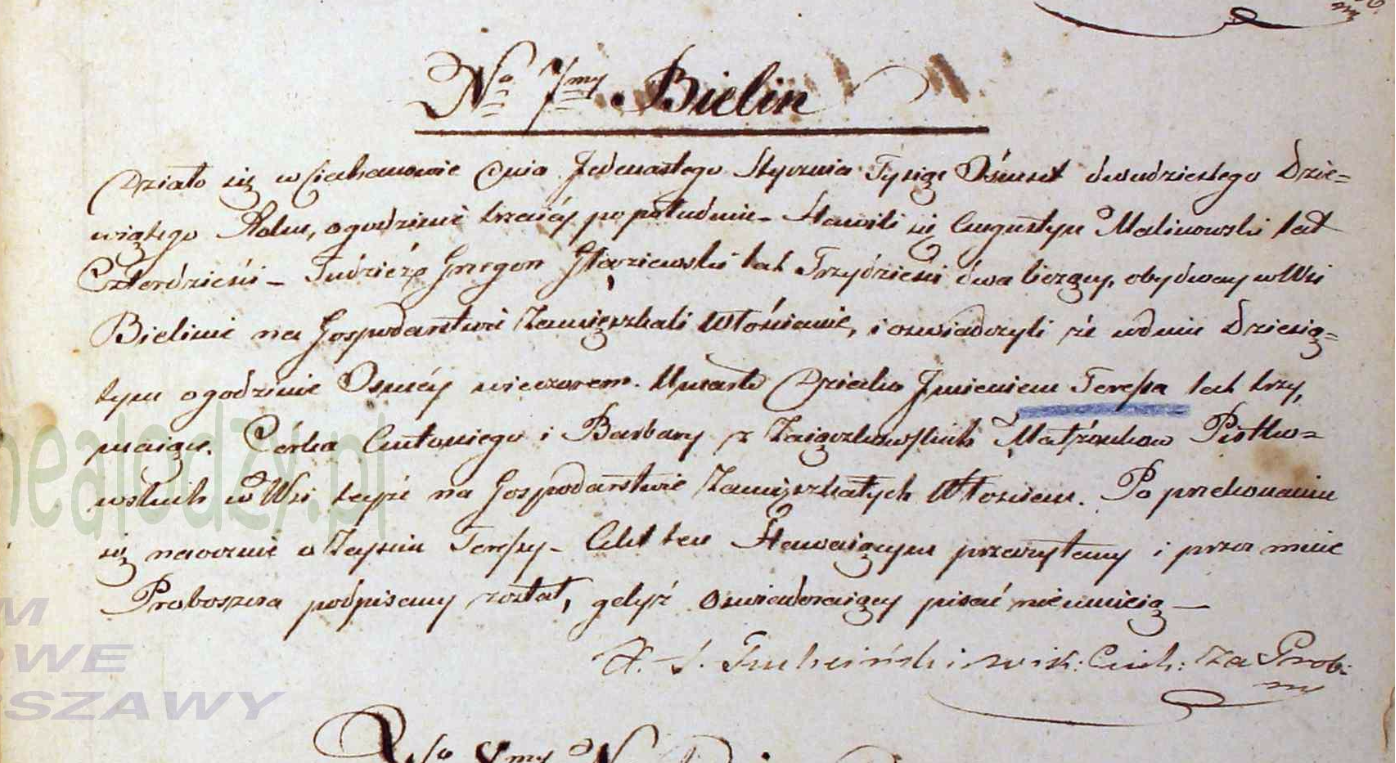 No 7my Bielin
Działo się w Ciechanowie Dnia Jedenastego Stycznia Tysiąc Ośmset dwudziestego Dzie=
wiątego Roku, o godzinie trzeciey po południu – Stawili się Augustyn Malinowski lat
Czterdzieści – Tudzież Grzegorz lat Trzydzieści dwa liczący, obydway w Wsi
Bielinie na Gospodarstwie Zamięszkali Włościanie, i oświadczyli że w dniu Dziesią=
tym o godzinie Osmey wieczorem. Umarło Dziecko Jmieniem Teressa lat trzy,
maiące. Córka Antoniego i Barbary z Zaiączkowskich Małżonków Piotko=
wskich w Wsi teyże na Gospodarstwie Zamięszkałych Włościan. Po przekonaniu
się naocznie o Zeyściu Teressy – Akt ten Stawaiącym przeczytany i przez mnie
Proboszcza podpisany został, gdyż Oświadczaiący pisać nieumieią –
X. J. wik: Ciech: Za Prob:
No 8my
nealodzy.pl
M
OWE
SZAWY